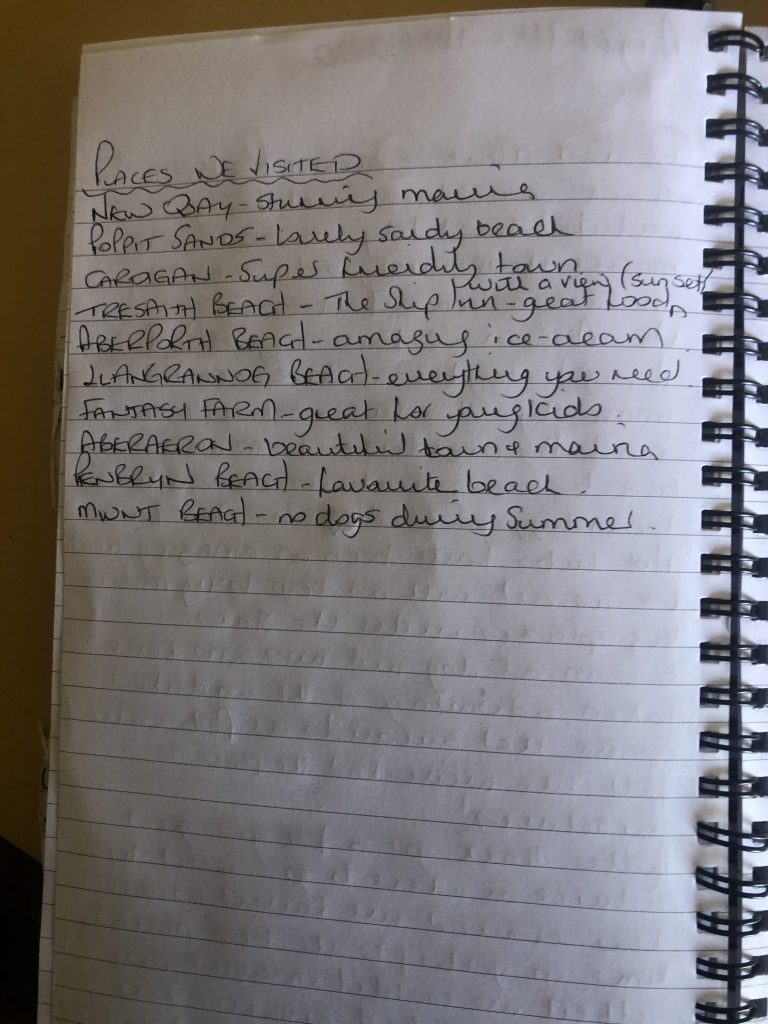 PLACES WE VISITED
NEW BAY - stunning marina
POPPIT SANDS - lovely sandy beach
CARDIGAN - super friendly town
with a view (sunset)
TRESAITH BEACH - The Ship Inn - great food
ABERPORTH BEACH - amazing ice-cream.
LLANGRANNOG BEACH - everything you need
FANTASY FARM - great for young kids.
ABERAERON - beautiful town + marina
PENBRYN BEACH - favourite beach.
MWNT BEACH - no dogs during summer.